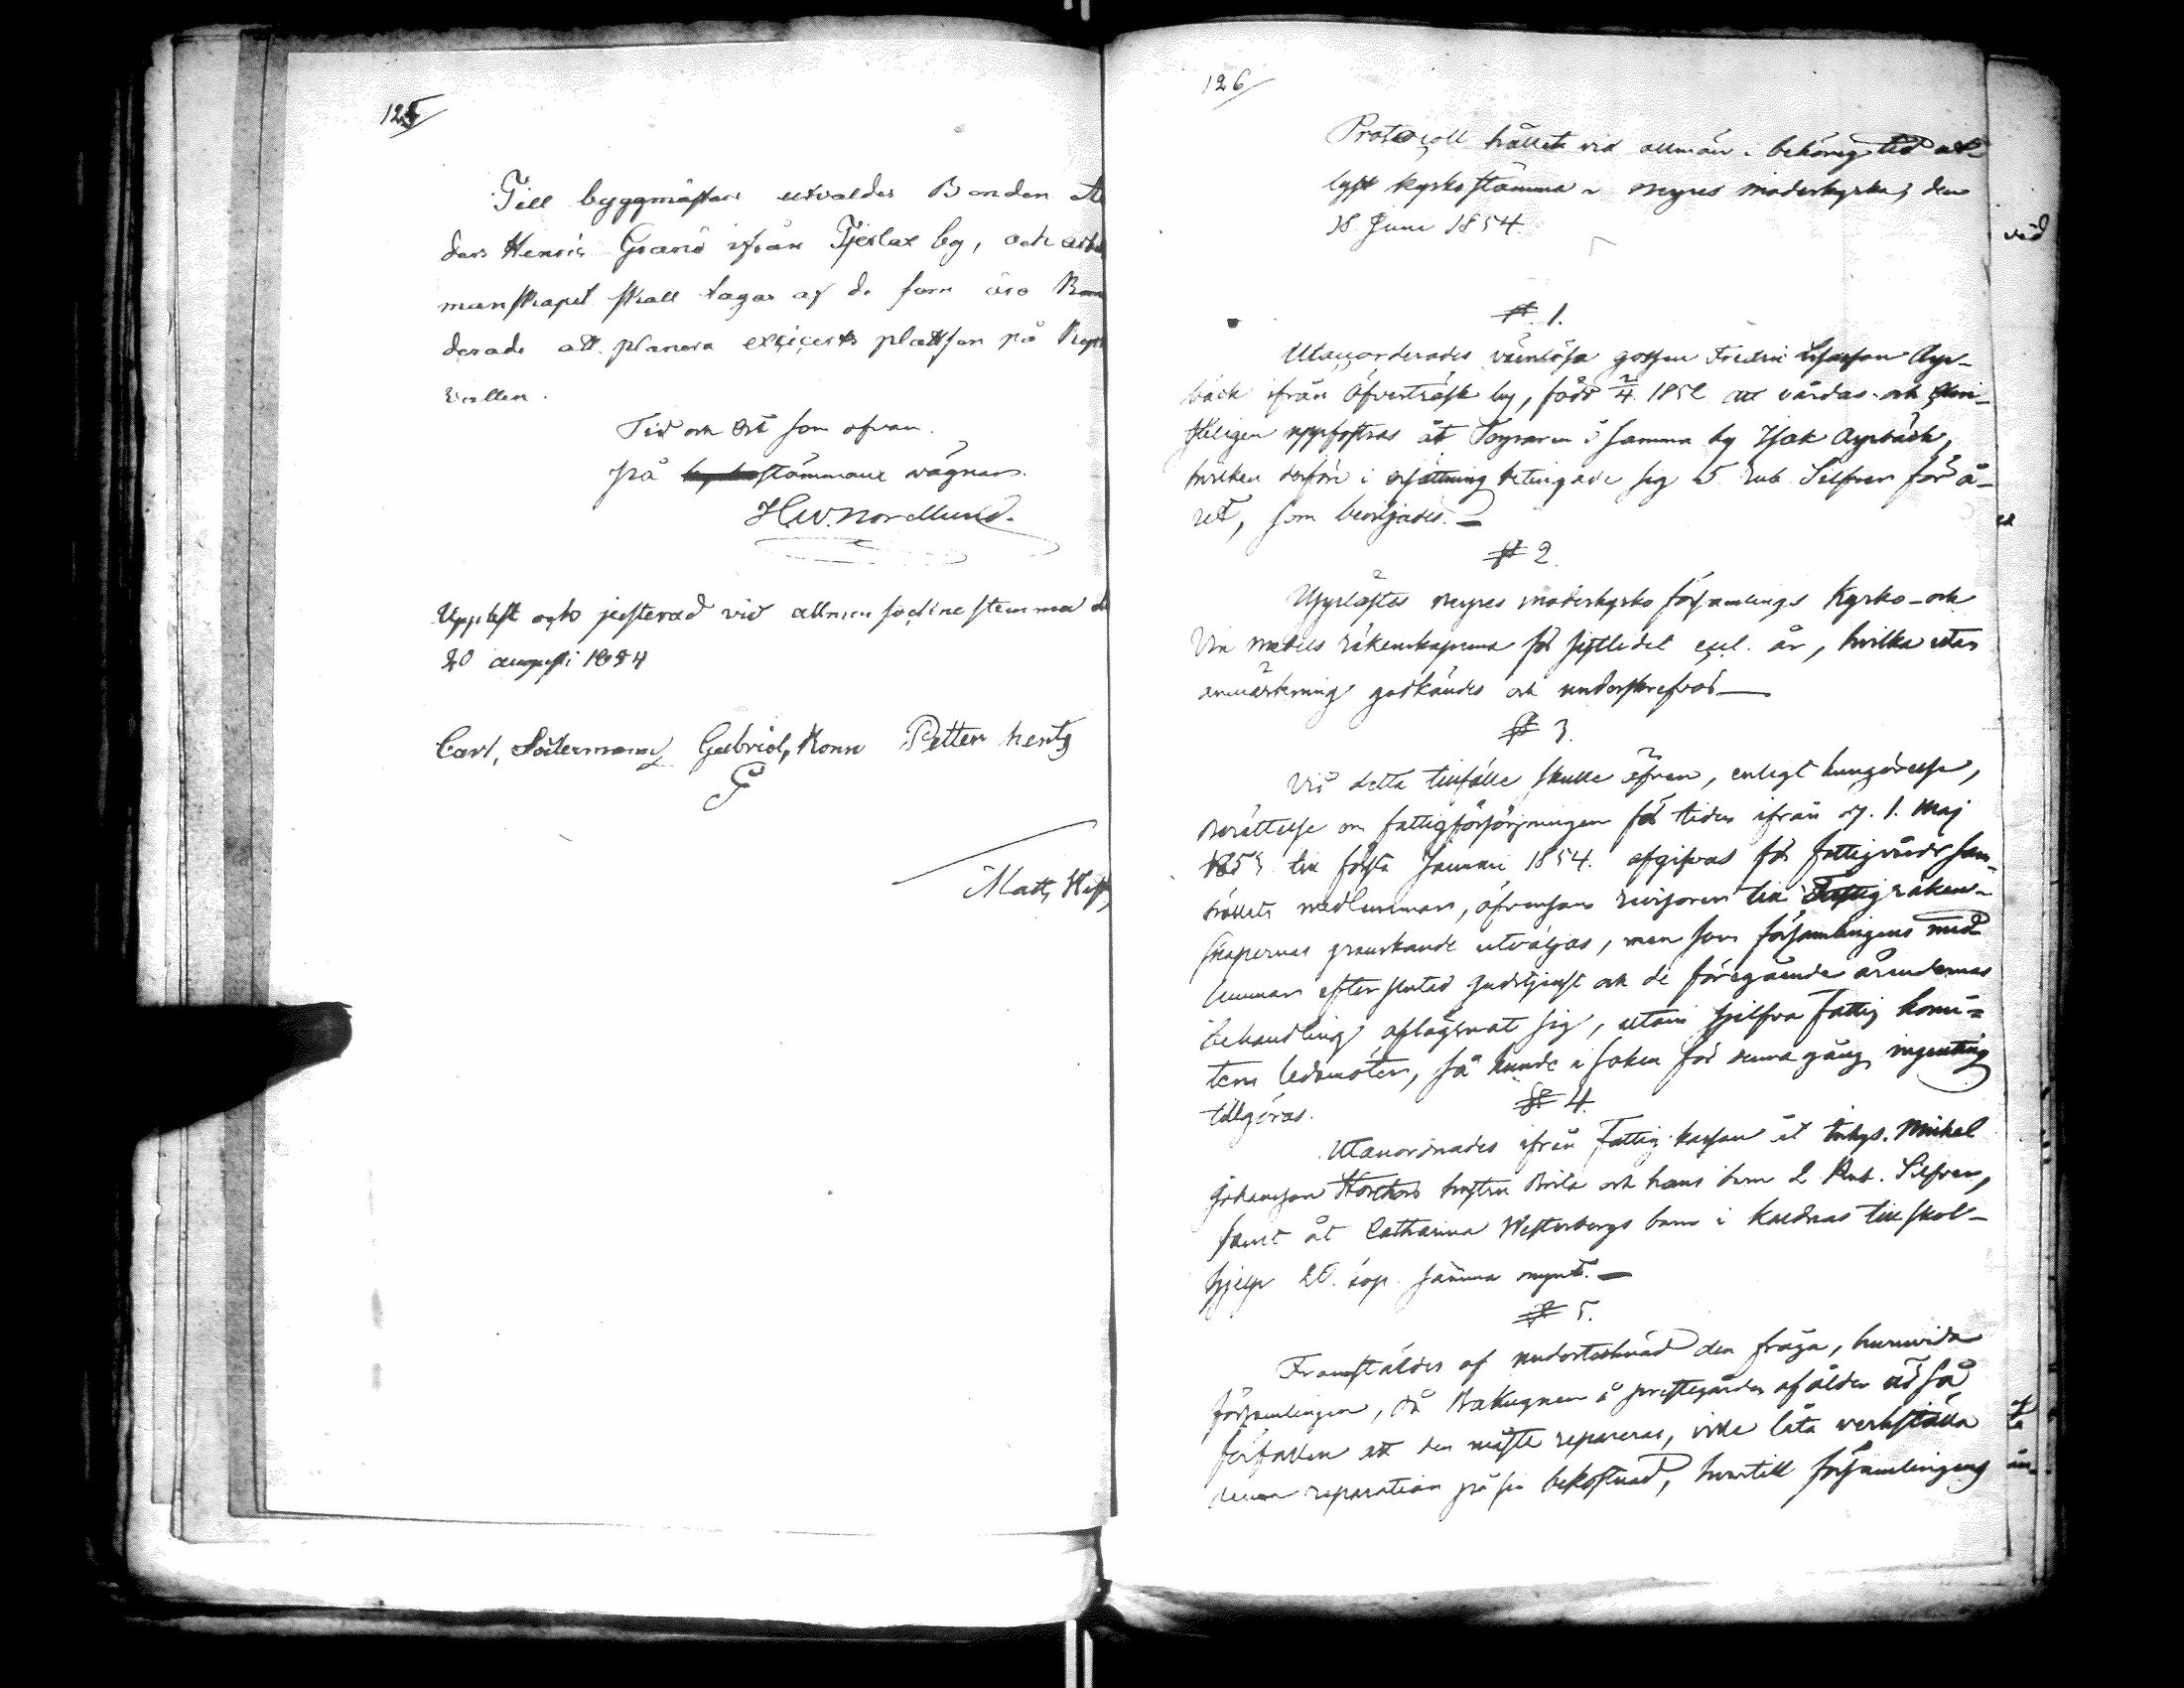 125
Till byggmästare utvaldes Bonden A
ders Henric Granö ifrån Tjerlax by, och arbe
manskapet skall tagas af de som äro Kom
derade att planera exicerts plattsen på
vallen.
Tid och Ort som ofvan.
på stämmans vägnar.
H.W. Nordlund.
Uppläst och justerad vid allmen sockne stemma d
20 augusti 1854
Carl, Södermann, Gabriel, Konn Petter hentz
G
Matts
126
Protocoll hållet vid allmän i behörig tid ut-
lyst kyrkostämma i moderkyrka, den
18 Juni 1854.
§ 1.
Utanorderades värnlösa gossen Fredric Ayr-
bäck ifrån Öfverträsk by, född 2/4 1852 att vårdas och Kri-
steligen uppfostras åt Torparen i samma by Isak Ayrbäck,
hvilken derföre i ersättning betingade sig 5 Rub. Silfver för å-
ret, som beviljades. —
§ 2.
Upplästes moderkyrko församlings Kyrko- och
Vin medels räkenskaperna för sistledet eccl. år, hvilka utan
anmärkning godkändes och underskrefvos —
§ 3.
Vid detta tillfälle skulle äfven, enligt kungörelse,
Berättelse om fattigförsörjningen för tiden ifrån d. 1. Maj
1853 till första Januari 1854. afgifvas för fattigvårds sam-
hällets medlemmar, äfvensom revisorer till Fattig räken-
skapernas granskande utväljas, men som församlingens med
lemmar efter slutad gudstjenst och de föregående ärendernas
behandling aflägsnat sig, utom sjelfva Fattig komi-
tens ledamöter, så kunde i saken för denna gång ingenting
tillgöras.
§ 4.
Utanordnades ifrån Fattig kassan åt Inhys. Mickel
Johansson hustru Brita och hans barn 2 Rub. Silfver,
samt åt Catharina Westerbergs barn i Kaldnas till skol-
hjelp 20. kop. samma mynt. —
§ 5.
Framställdes af undertecknad den fråga, huruvida
församlingen, då Bakugnen å prestegården af ålder är så
förfallen att den måste repareras, ville låta verkställa
denna reparation på sin bekostnad, hvartill församlingens